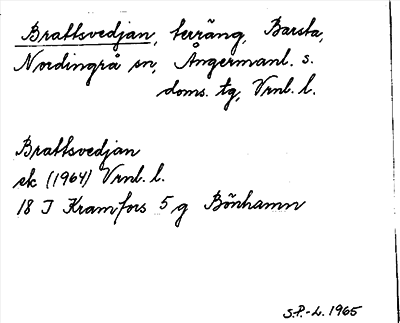 Brattsvedjan, terräng, Barsta,
Nordingrå sn, Ångermanl. s.
doms. tg, Vrnl. l.
Brattsvedjan
ek (1964) Vrnl. l.
18 J Kramfors 5 g Bönhamn
S.P.-L. 1965